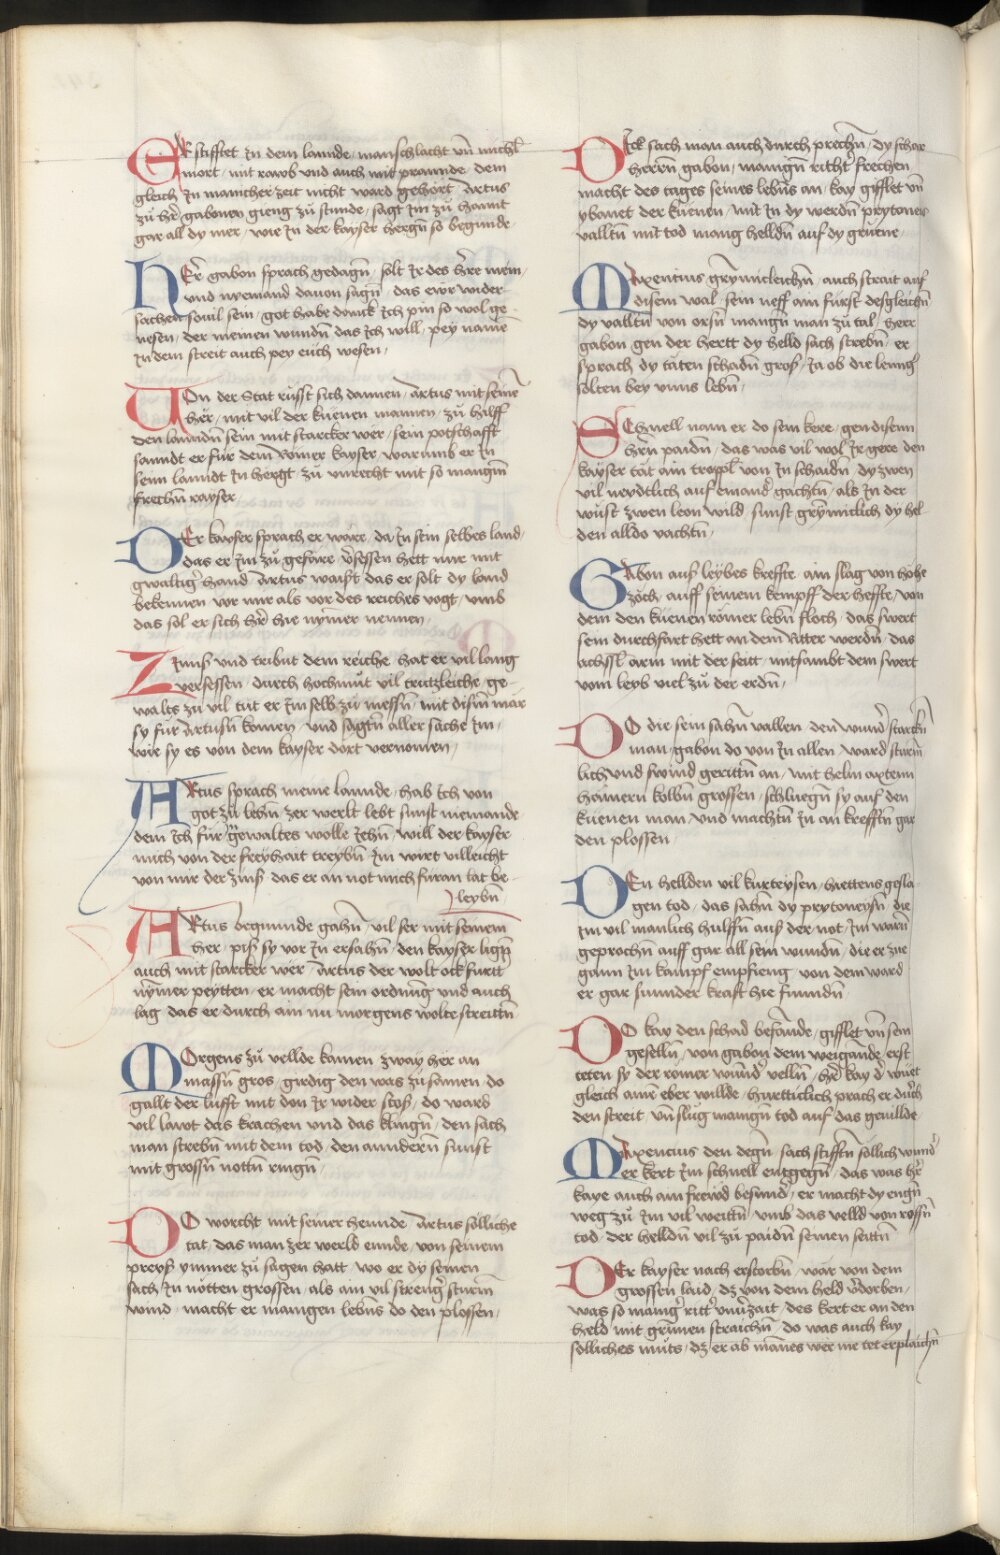 ER stifftet Jn dem lannde / manschlacht vn̄ michl̄
mort / mit rawb vnd auch mit prannde / dem
gleich Jn mancher zeit nicht ward gehört / Artus
zu hr̄ gabonen gieng zu stunde / sagt Jm zu hannt
gar all dy mer / wie Jn der kayser hergn̄ so begunde /
HEr gabon sprach gedagn̄ / solt Jr des here mein /
vnd nyemand dauon sagn̄ / das ewr wider
sachen souil sein / got habe danck Jch pin so wol ge
nesen / der meinen wundn̄ das ich will / pey namē
Jn dem streit auch pey euch wesen /
VOn der stat rüsst sich dannen / Artus mit seinē
her / mit vil der kuenen mannen / zu hilff
den lanndn̄ sein mit starcker wer / sein potschafft
sanndt er für dem Römer kayser / warumb er Jn
sein lanndt Jn hergt / zu vnrecht mit so mangm̄
frechn̄ rayser /
DEr kayser sprach er wäre / da Jn sein selbes land /
das er Jm zu gefäre / v̄sessen hett mit
gwaltigr̄ hand / Artus waist das er solt dy land
bekennen / vor mir als vor des reiches vogt / vmb
das sol er sich hr̄ hie nymer nennen /
ZYnns vnd tribut dem reiche / hat er vil lang
versessen / durch hochmut vil trutzleiche / ge
walts zu vil tut er Jm selb zu messn̄ / mit dism̄ mär
sy für Artusn̄ komen / vnd sagtn̄ aller sache Jm /
wie sy es von dem kayser dort vernomen /
ARtus sprach meine lannde / hab ich von
got zu lehn̄ / zer werlt lebt sunst niemande
dem Jch für gewaltes wolle Jehn̄ / will der kayser
mich von der freyhait treybn̄ / Jm wirt villeicht
von mir der zins / das er an not mich furan lat be
leybn̄
ARtus begunnde gahn̄ / vil ser mit seinem
her / pis sy vor Jn ersahn̄ / den kayser lign̄
auch mit starcker wer / Artus der wolt ock furtt
nymer peytten / er macht sein ordnūg vnd auch
lag / das er durch ain nu morgens wolte streittn̄
MOrgens zu vellde kamen / zway her an
massn̄ gros / girdig den was zusamen / do
gallt der lufft mit don Jr wider stos / do ward
vil lawt das krachen vnd das klingn̄ / den sach
man strebn̄ mit dem tod / den annderñ sunst
mit grossn̄ nöttn̄ ringn̄ /
DO worcht mit seiner hennde / Artus sölliche
tat / das man zer werld ennde / von seinem
preys ymmer zu sagen hatt / wo er dy seinen
sach / Jn nötten grossen / als ain vil strengr̄ sturm̄
wind / macht er manigen lebn̄s do den plossen /
DIck sach man auch durch prechn̄ / dy schar
herren gabon / manign̄ ritter frechen
macht des tages seines lebn̄s an / kay gifflet vn̄
ybanet der küenen / mit Jn dy werdn̄ prytoneis
valltn̄ mit tod mang helldn̄ auf dy grüene /
MAxencius grymicleichn̄ / auch strait auf
disem wal / sein neff ain fürst desgleichn̄
dy valltn̄ von orsn̄ mangn̄ man zu tal / herr
gabon gen der hertt dy helld sach strebn̄ / er
sprach dy täten schadn̄ gros / Ja ob die leng
solten bey vnns lebn̄ /
SChnell nam er do sein kere / gen disenn
hrn̄ paidn̄ / das was vil wol Jr gere / den
kayser tät ain tropl̄ von Jn schaidn̄ / dy zwen
vil neydtlich auf emandr̄ gachtn̄ / als Jn der
wüst zwen leon wild / sunst grymiclich dy hel
den alldo vachtn̄ /
GAbon aus leybes kreffte / ain slag von höhe
zoch / auff seinem kempff der heffte / von
dem den kuenen römer lebn̄ floch / das swert
sein durchfart hett an dem Ritter werdn̄ / das
achssl̄ arm mit der seitt / mitsambt dem swert
vom leyb viel zu der erdn̄ /
DO die sein sahn̄ vallen / den wundr̄ starckn̄
man / gabon do von Jn allen / ward sturm
lich vnd swind gerittn̄ an / mit helm axtenn
hämern kolbn̄ grossen / schluegn̄ sy auf den
küenen man / vnd machtn̄ Jn an krefftn̄ gar
den plossen
DEn hellden vil kurteysen / hiettens gesla
gen tod / das sahn̄ dy prytoneysn̄ / die
Jm vil manlich hulffn̄ aus der not / Jm warn̄
geprochn̄ auff gar all sein wundn̄ / die er zue
gann Jm kampf empfieng / von dem ward
er gar sunnder kraft hie funndn̄
DO kay den schad besande / gifflet vn̄ sein
geselln̄ / von gabon dem weigande / erst
teten sy der römer wundr̄ velln̄ / hr̄ kay d̄ wuet
gleich aim eber willde / hurtticlich prach er durch
den streit / vn̄ slug mangn̄ tod auf das geuillde
MAxencius den degn̄ / sach stifftn̄ sollich wundr̄
er kert Jm schnell entgegn̄ / das was hr̄
kaye auch ain frewd besundr̄ / er macht dy engn̄
weg zu Jm vil weittn̄ / vmb das velld von rossn̄
tod / der helldn̄ vil zu paidn̄ seinen seittn̄
DEr kayser nach erstorbn̄ / wär von dem
grossen laid / dz von dem held v̄dorben /
was so mangr̄ rittr̄ vnuerzait / des kert er an den
held mit grimen straichn̄ / do was auch kay
sölliches muts / dz er ab manes wer nie tet erplaichn̄